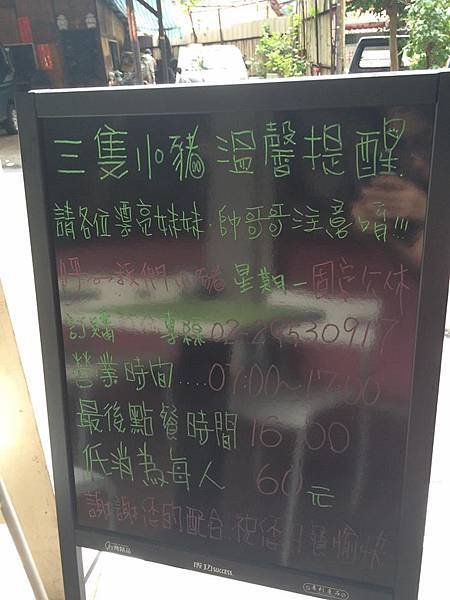 三隻小豬溫馨提醒
請各位漂亮妹妹.帥哥哥注意唷!!!
我們小豬星期一固定公休
訂購專線02-29530917
營業時間....07:00~17:00
最後點餐時間16:00
低消為每人 60元
謝謝您的配合.祝您用餐愉快
成功success